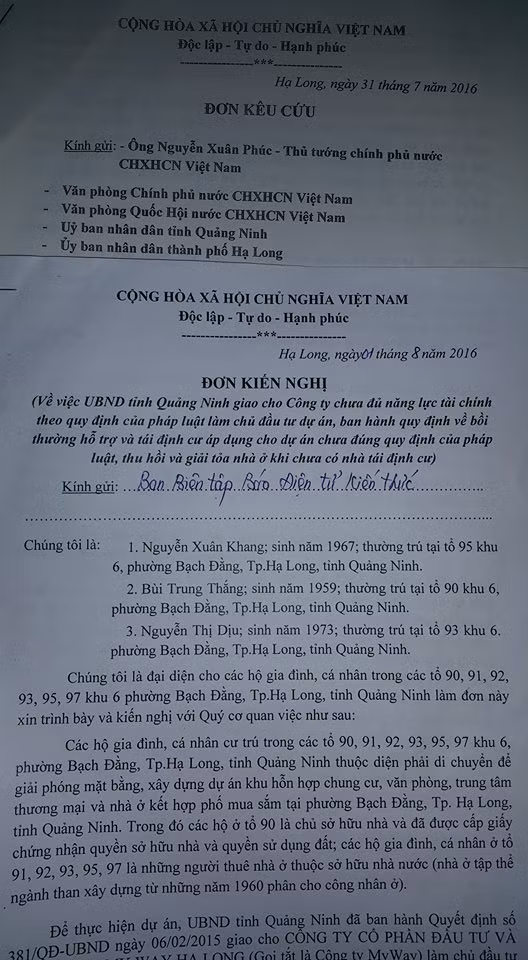 CỘNG HÒA XÃ HỘI CHỦ NGHĨA VIỆT NAM
Độc lập - Tự do - Hạnh phúc
-----------------***----------------
Hạ Long, ngày 31 tháng 7 năm 2016
ĐƠN KÊU CỨU
Kính gửi: - Ông Nguyễn Xuân Phúc - Thủ tướng chính phủ nước
CHXHCN Việt Nam
- Văn phòng Chính phủ nước CHXHCN Việt Nam
- Văn phòng Quốc Hội nước CHXHCN Việt Nam
- Uỷ ban nhân dân tỉnh Quảng Ninh
- Ủy ban nhân dân thành phố Hạ Long
CỘNG HÒA XÃ HỘI CHỦ NGHĨA VIỆT NAM
Độc lập - Tự do - Hạnh phúc
-----------------***----------------
Hạ Long, ngày 01 tháng 8 năm 2016
ĐƠN KIẾN NGHỊ
(Về việc UBND tỉnh Quảng Ninh giao cho Công ty chưa đủ năng lực tài chính
theo quy định của pháp luật làm chủ đầu tư dự án, ban hành quy định về bồi
thường hỗ trợ và tái định cư áp dụng cho dự án chưa đúng quy định của pháp
luật, thu hồi và giải tỏa nhà ở khi chưa có nhà tái định cư)
Kính gửi: ...Ban Biên tập Báo Điện tử Kiến thức..............
Chúng tôi là: 1. Nguyễn Xuân Khang; sinh năm 1967; thường trú tại tổ 95 khu
6, phường Bạch Đằng, Tp.Hạ Long, tỉnh Quảng Ninh.
2. Bùi Trung Thắng; sinh năm 1959; thường trú tại tổ 90 khu 6,
phường Bạch Đằng, Tp.Hạ Long, tỉnh Quảng Ninh.
3. Nguyễn Thị Dịu; sinh năm 1973; thường trú tại tổ 93 khu 6.
phường Bạch Đằng, Tp.Hạ Long, tỉnh Quảng Ninh.
Chúng tôi là đại diện cho các hộ gia đình, cá nhân trong các tổ 90, 91, 92,
93, 95, 97 khu 6 phường Bạch Đằng, Tp.Hạ Long, tỉnh Quảng Ninh làm đơn này
xin trình bày và kiến nghị với Quý cơ quan việc như sau:
Các hộ gia đình, cá nhân cư trú trong các tổ 90, 91, 92, 93, 95, 97 khu 6,
phường Bạch Đằng, Tp.Hạ Long, tỉnh Quảng Ninh thuộc diện phải di chuyển để
giải phóng mặt bằng, xây dựng dự án khu hỗn hợp chung cư, văn phòng, trung tâm
thương mại và nhà ở kết hợp phố mua sắm tại phường Bạch Đằng, Tp. Hạ Long,
tỉnh Quảng Ninh. Trong đó các hộ ở tổ 90 là chủ sở hữu nhà và đã được cấp giấy
chứng nhận quyền sở hữu nhà và quyền sử dụng đất; các hộ gia đình, cá nhân ở tổ
91, 92, 93, 95, 97 là những người thuê nhà ở thuộc sở hữu nhà nước (nhà ở tập thể
ngành than xây dựng từ những năm 1960 phân cho công nhân ở).
Để thực hiện dự án, UBND tỉnh Quảng Ninh đã ban hành Quyết định số
381/QĐ-UBND ngày 06/02/2015 giao cho CÔNG TY CỔ PHẦN ĐẦU TƯ VÀ
WAY HẠ LONG (Gọi tắt là Công ty MyWay) làm chủ đầu tư